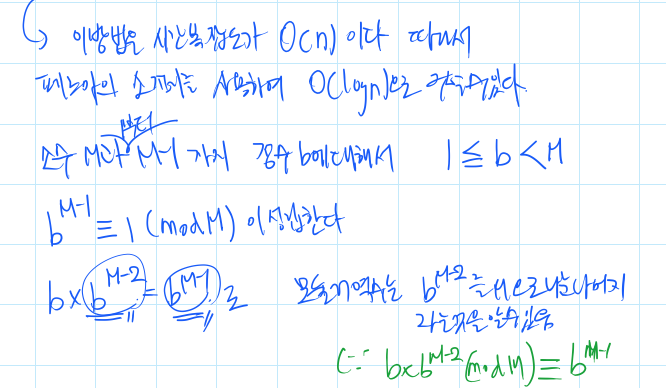 이방법은 시간복잡도가 O(n) 이다 따라서
페르마의 소정리를 사용하여 O(logn)으로 구할수있다.
부터
소수 M과 M-1 까지 정수 b에대해서 1 ≤ b < M
b^{M-1} ≡ 1 (mod M) 이성립한다
b × b^{M-2} = b^{M-1} 로 모듈러 역수는 b^{M-2} 를 M으로나눈나머지
라는것을알수있음
(∵ b×b^{M-2} (mod M) ≡ b^{M-1}